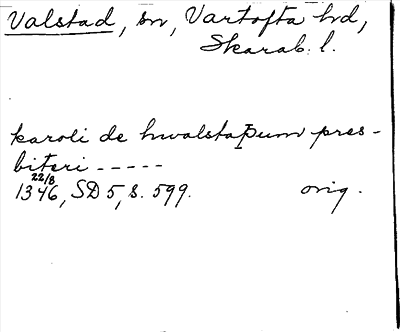 Valstad, sn, Vartofta hd,
Skarab. l.
karoli de hwalstaþum pres-
biteri -----
22/8
1346, SD 5, s. 599. orig.